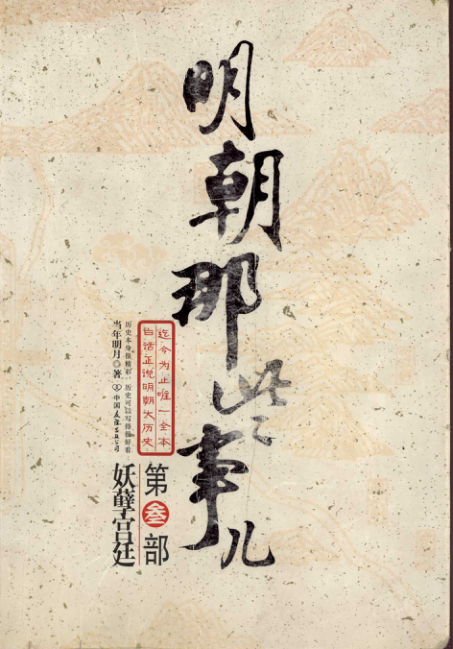 明朝那些事儿
迄今为止唯一全本
白话正说明朝大历史
历史本身很精彩 历史可以写得很好看
当年明月◎著 中国友谊出版公司
第叁部
妖孽宫廷